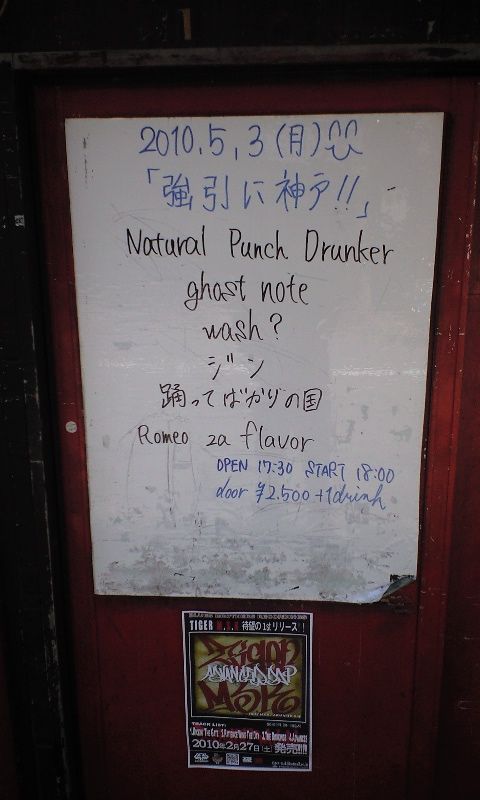 2010.5.3(月)
「強引に神戸!!」
Natural Punch Drunker
ghost note
wash?
ジン
踊ってばかりの国
Romeo za flavor
OPEN 17:30 START 18:00
door ¥2.500+1drink
TIGER M.S.K 待望の1stリリース!
TRACK LIST:
2010年2月27日(土)発売!!!